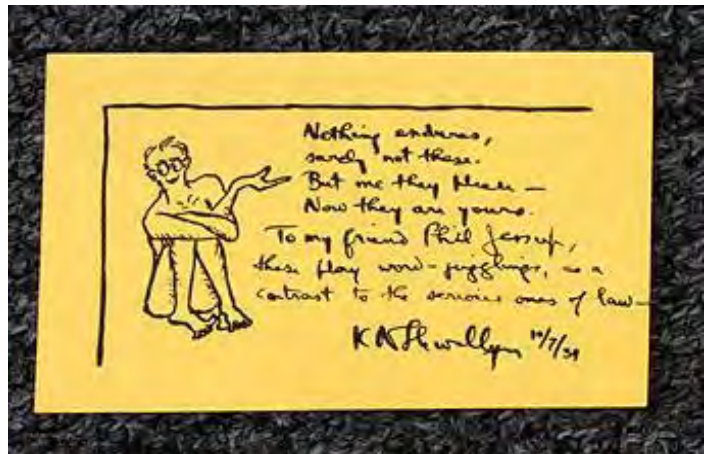 Nothing endures,
surely not these.
But me they please —
Now they are yours.
To my friend Phil Jessup,
these play word-jugglings, as a
contrast to the serious ones of law —
K N Llewellyn 10/7/31